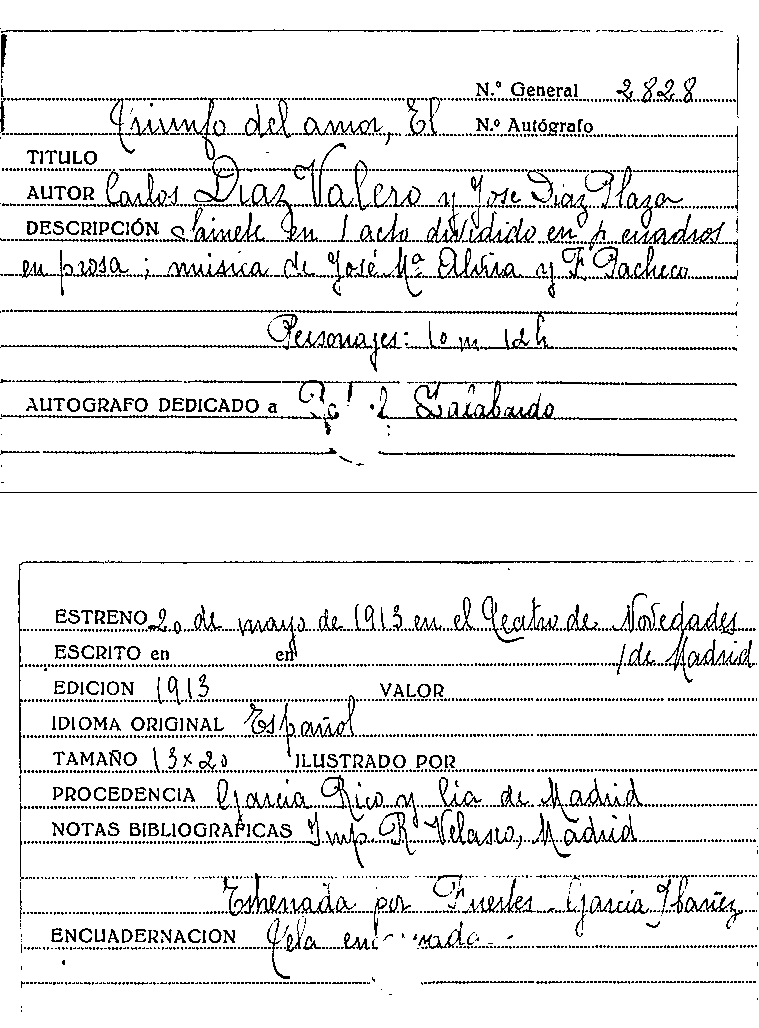 N.º General 2828
Triunfo del amor, El N.º Autógrafo
TITULO
AUTOR Carlos Díaz Valero y Jose Díaz Plaza
DESCRIPCIÓN Sainete en 1 acto dividido en cuadros
en prosa; música de José Mª Alvira y F. Pacheco
Personajes: 10 m 12 h
AUTOGRAFO DEDICADO a Zalabardo
ESTRENO 20 de mayo de 1913 en el Teatro de Novedades
ESCRITO en en /de Madrid
EDICION 1913 VALOR
IDIOMA ORIGINAL Español
TAMAÑO 13 x 20 ILUSTRADO POR
PROCEDENCIA García Rico y Cia de Madrid
NOTAS BIBLIOGRAFICAS Imp. R. Velasco, Madrid
Estrenada por Fuertes - García Ibañez
ENCUADERNACION Tela